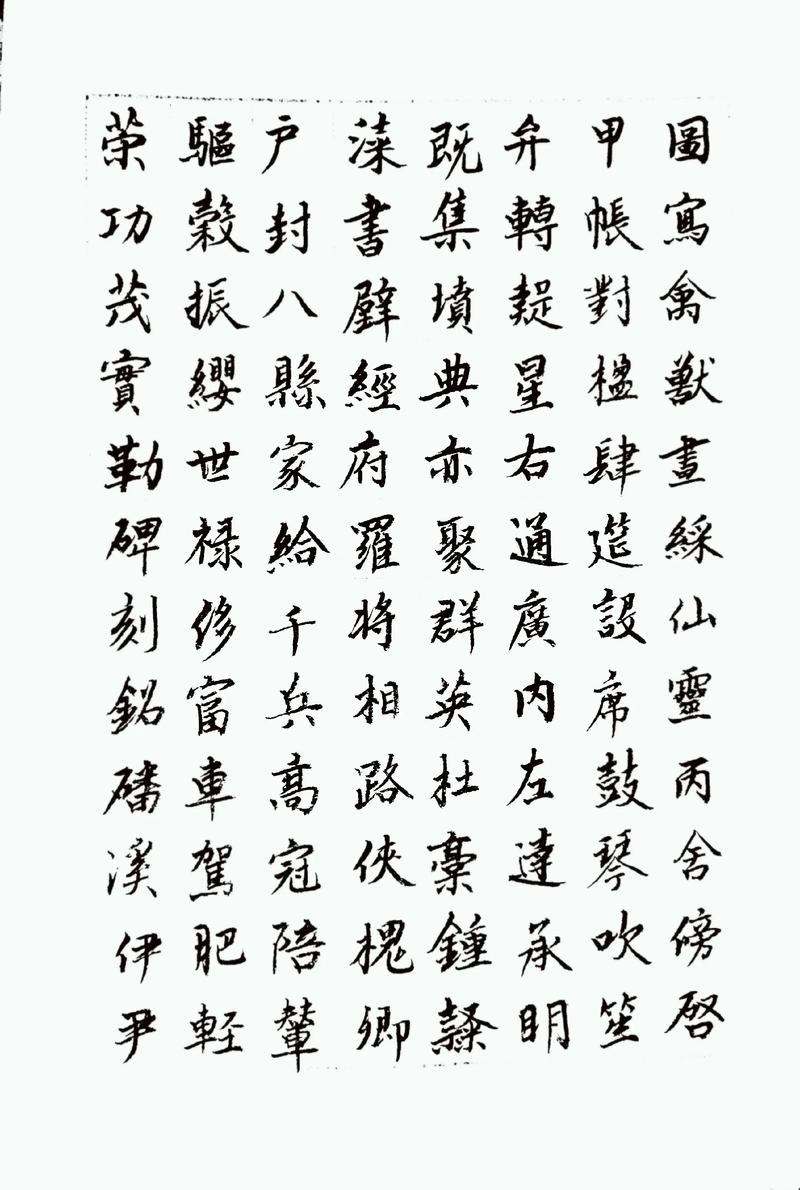 圖寫禽獸畫綵仙靈丙舍傍啓
甲帳對楹肆筵設席鼓琴吹笙
弁轉疑星右通廣内左達承明
既集墳典亦聚群英杜稾鍾隸
漆書壁經府羅将相路俠槐卿
户封八縣家給千兵高冠陪輦
驅轂振纓世禄侈富車駕肥軽
策功茂實勒碑刻銘磻溪伊尹